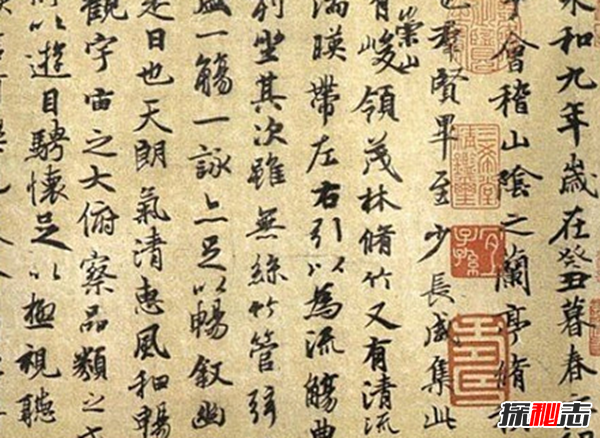 永和九年歲在癸丑暮春
會稽山陰之蘭亭脩
也群賢畢至少長咸集此
崇山
有峻領茂林脩竹又有清流
湍暎帶左右引以為流觴曲
列坐其次雖無絲竹管弦
盛一觴一詠亦足以暢敘幽
是日也天朗氣清惠風和暢
觀宇宙之大俯察品類之
所以遊目騁懷足以極視聽
三希堂精鑑璽
宜子孫
探秘志